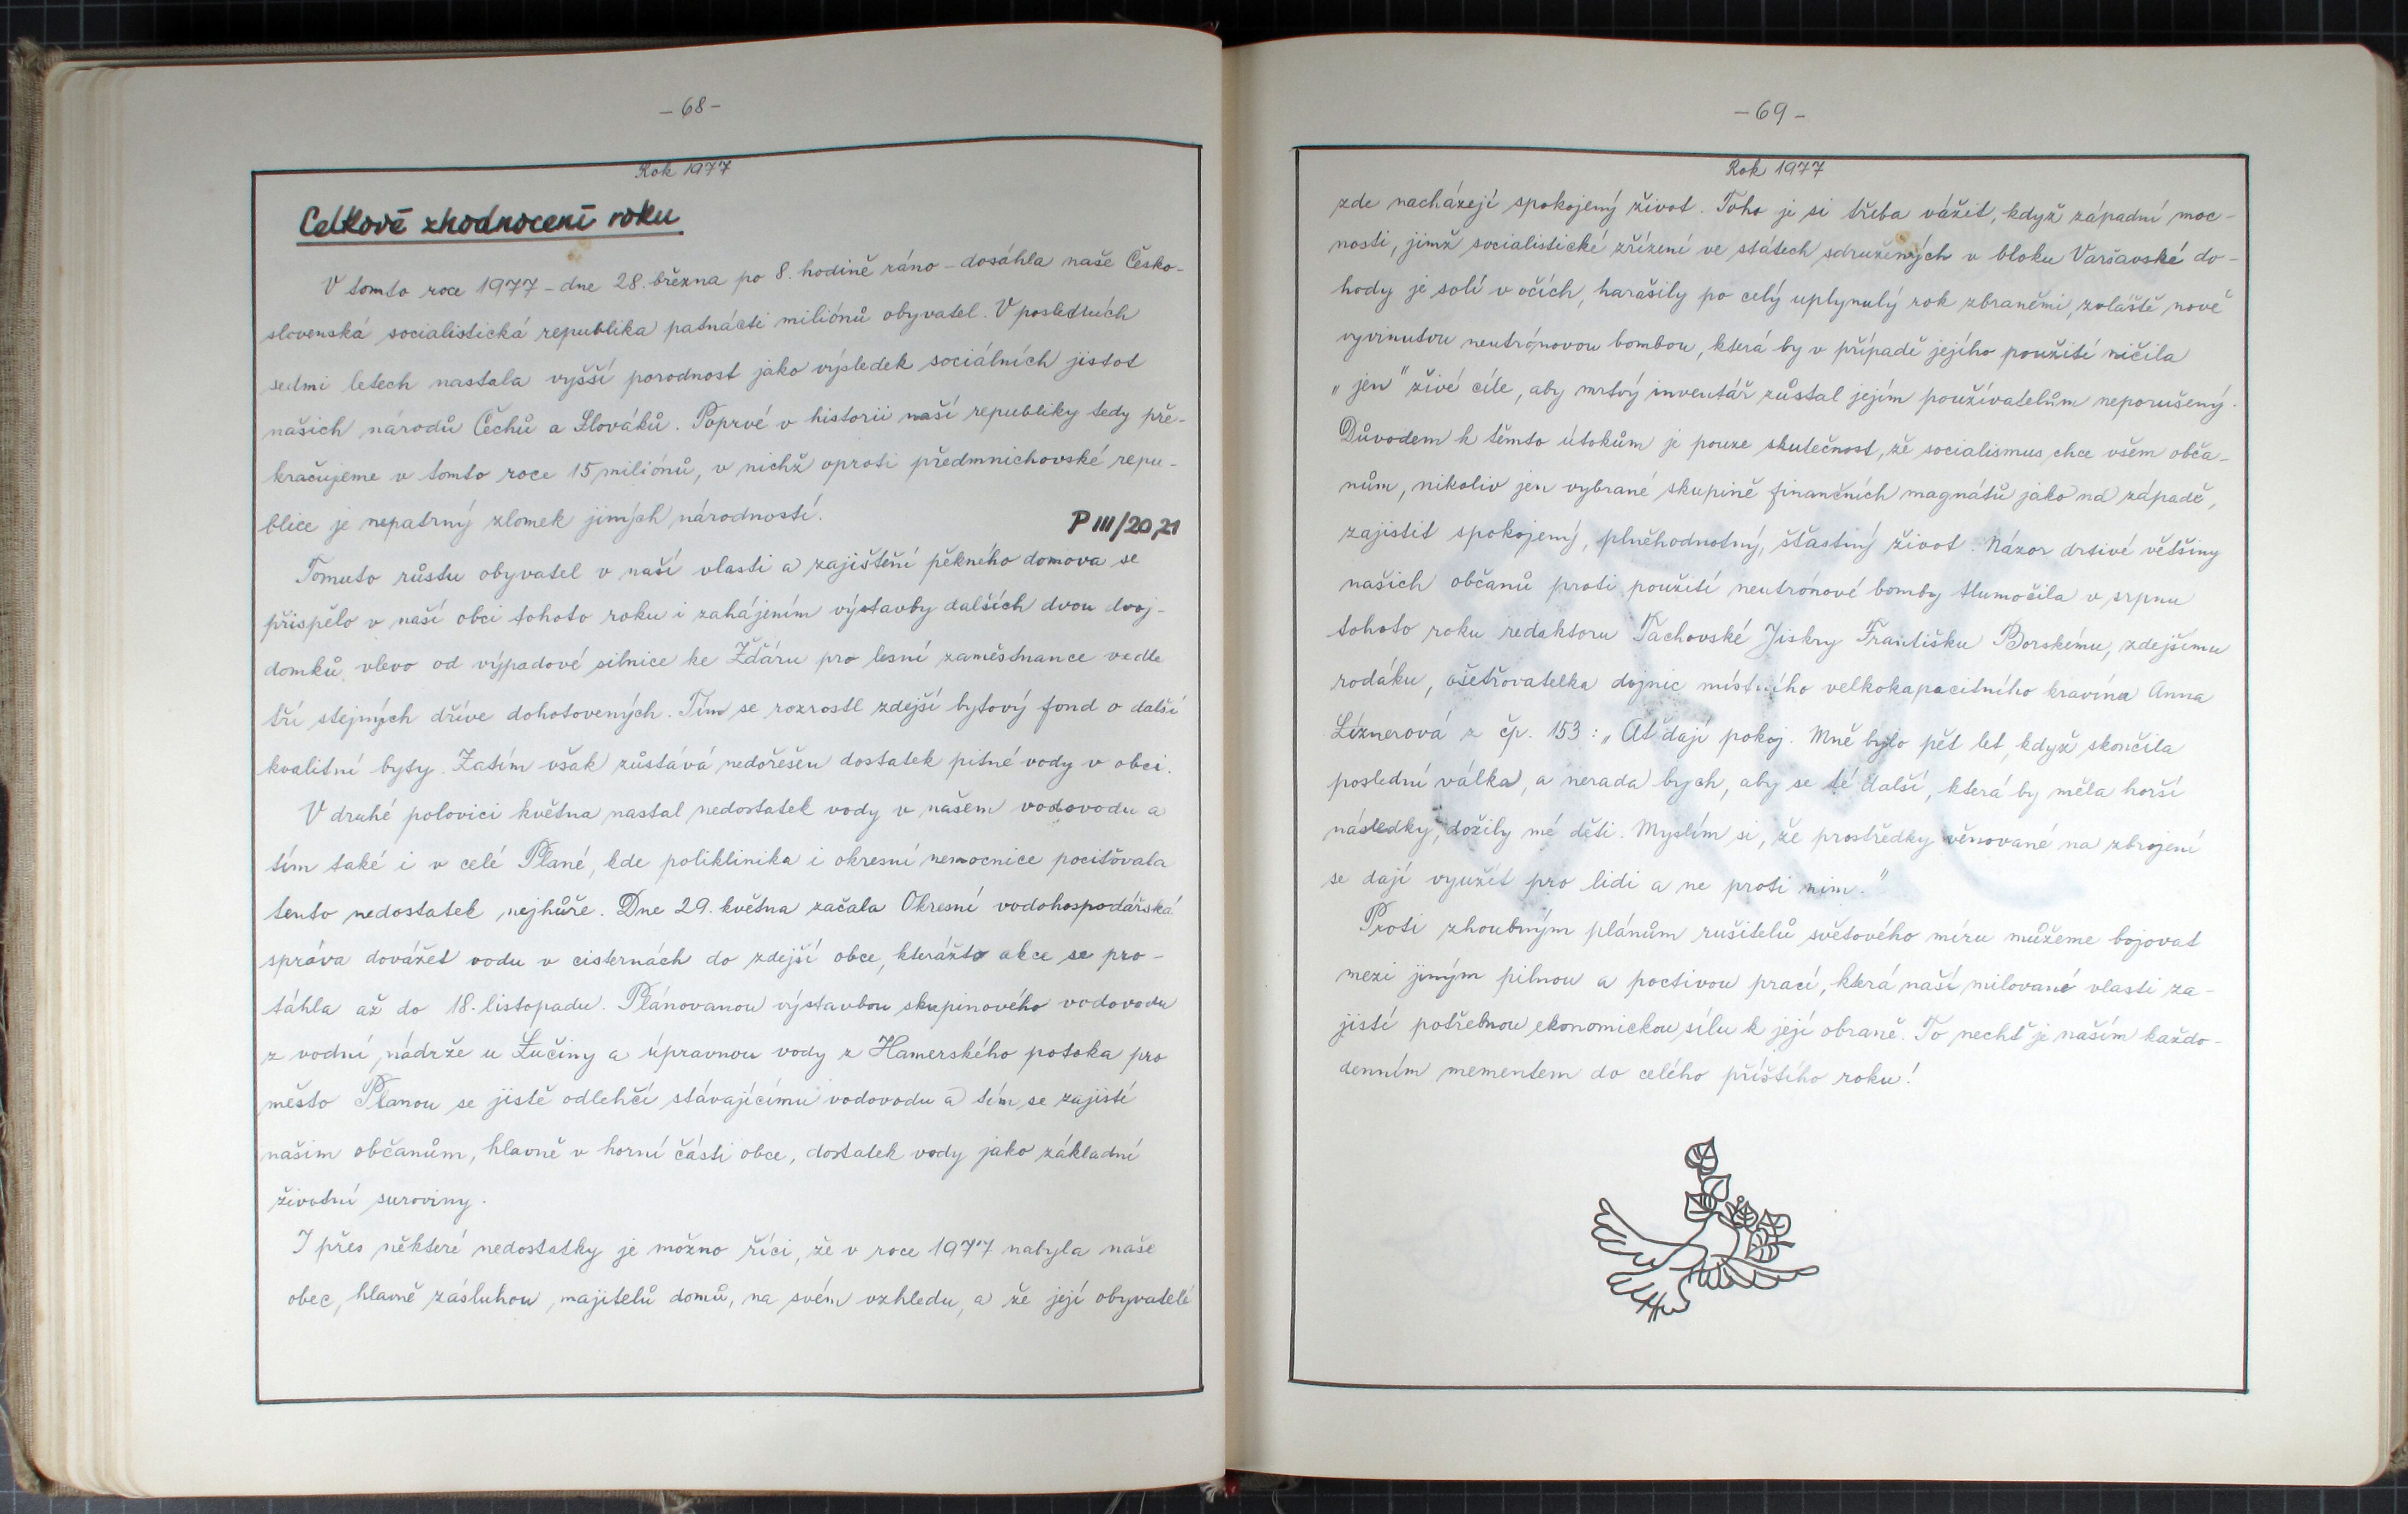 - 68 -
Rok 1977
Celkové zhodnocení roku
V tomto roce 1977 - dne 28. března po 8. hodině ráno - dosáhla naše Česko-
slovenská socialistická republika patnácti miliónů obyvatel. V posledních
sedmi letech nastala vyšší porodnost jako výsledek sociálních jistot
našich národů Čechů a Slováků. Poprvé v historii naší republiky tedy pře-
kračujeme v tomto roce 15 miliónů, v nichž oproti předmnichovské repu-
blice je nepatrný zlomek jiných národností.
P III/20,21
Tomuto růstu obyvatel v naší vlasti a zajištění pěkného domova se
přispělo v naší obci tohoto roku i zahájením výstavby dalších dvou dvoj-
domků vlevo od výpadové silnice ke Žďáru pro lesní zaměstnance vedle
tří stejných dříve dohotovených. Tím se rozrostl zdejší bytový fond o další
kvalitní byty. Zatím však zůstává nedořešen dostatek pitné vody v obci.
V druhé polovici května nastal nedostatek vody v našem vodovodu a
tím také i v celé Plané, kde poliklinika i okresní nemocnice pociťovala
tento nedostatek nejhůře. Dne 29. května začala Okresní vodohospodářská
správa dovážet vodu v cisternách do zdejší obce, kterážto akce se pro-
táhla až do 18. listopadu. Plánovanou výstavbou skupinového vodovodu
z vodní nádrže u Lučiny a úpravnou vody z Hamerského potoka pro
město Planou se jistě odlehčí stávajícímu vodovodu a tím se zajistí
našim občanům, hlavně v horní části obce, dostatek vody jako základní
životní suroviny.
I přes některé nedostatky je možno říci, že v roce 1977 nabyla naše
obec, hlavně zásluhou majitelů domů, na svém vzhledu, a že její obyvatelé
- 69 -
Rok 1977
zde nacházejí spokojený život. Toho je si třeba vážit, když západní moc-
nosti, jimž socialistické zřízení ve státech sdružených v bloku Varšavské do-
hody je solí v očích, harašily po celý uplynulý rok zbraněmi, zvláště nově
vyvinutou neutrónovou bombou, která by v případě jejího použití ničila
„jen" živé cíle, aby mrtvý inventář zůstal jejím používatelům neporušený.
Důvodem k těmto útokům je pouze skutečnost, že socialismus chce všem obča-
nům, nikoliv jen vybrané skupině finančních magnátů jako na západě,
zajistit spokojený, plněhodnotný, šťastný život. Názor drtivé většiny
našich občanů proti použití neutrónové bomby tlumočila v srpnu
tohoto roku redaktoru Tachovské Jiskry Františku Borskému, zdejšímu
rodáku, ošetřovatelka dojnic místního velkokapacitního kravína Anna
Líznerová z čp. 153: „Ať dají pokoj. Mně bylo pět let, když skončila
poslední válka, a nerada bych, aby se té další, která by měla horší
následky, dožily mé děti. Myslím si, že prostředky věnované na zbrojení
se dají využít pro lidi a ne proti nim."
Proti zhoubným plánům rušitelů světového míru můžeme bojovat
mezi jiným pilnou a poctivou prací, která naší milované vlasti za-
jistí potřebnou ekonomickou sílu k její obraně. To nechť je naším každo-
denním mementem do celého příštího roku!